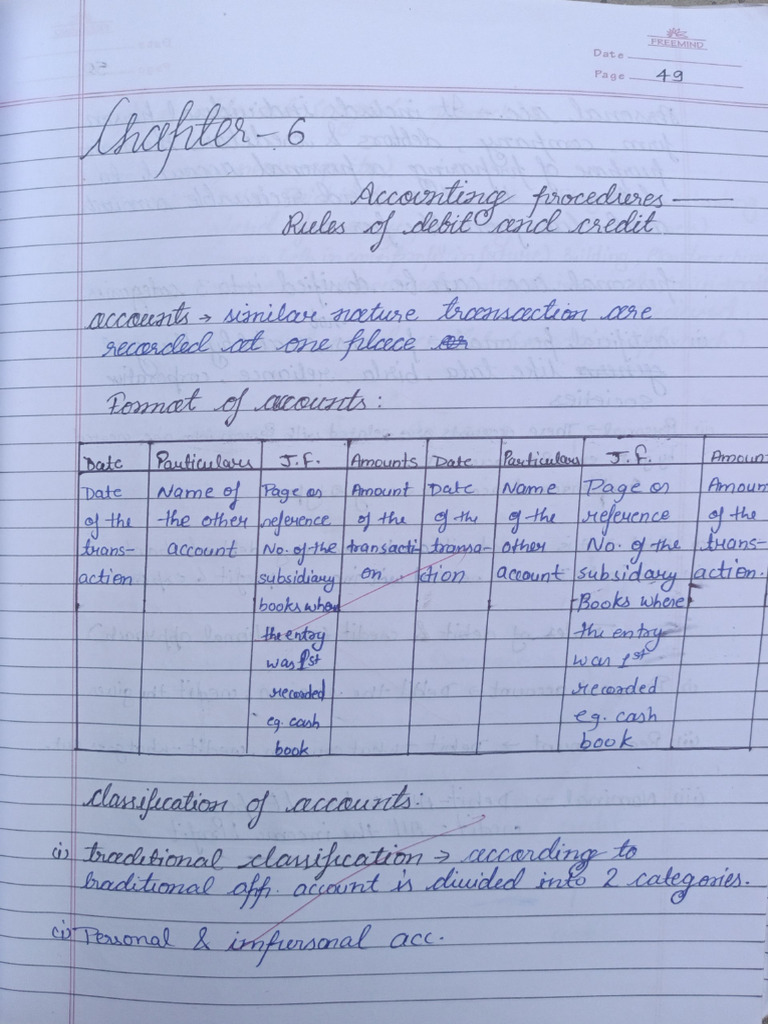 FREEMIND
Date
Page 49
Chapter - 6
Accounting procedures —
Rules of debit and credit
accounts → similar nature transaction are
recorded at one place
Format of accounts:
Date Particulars J.F. Amounts Date Particulars J.F. Amoun
Date Name of Page or Amount Date Name Page or Amoun
of the the other reference of the of the of the reference of the
trans- account No. of the transacti- transa- other No. of the trans-
action subsidiary on ction account subsidary action.
books where Books where
the entry the entry
was 1st was 1st
recorded recorded
eg. cash eg. cash
book book
classification of accounts:
(i) traditional classification → according to
traditional app. account is divided into 2 categories.
(i) Personal & impersonal acc.